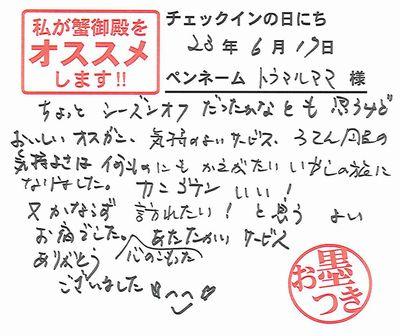 私が蟹御殿を
オススメ
します!!
チェックインの日にち
23年6月19日
ペンネーム トラマルママ 様
ちょっと シーズンオフ だったかなとも 思うけど
おいしいオスガニ、気持のよいサービス、ろてん風呂の
気持よさは 何ものにも かえがたい いやしの旅に
なりました。 カニゴテン いい!
又かならず 訪れたい! と思う よい
お宿でした。 あたたかい サービス
ありがとう 心のこもった
ございました
お墨つき